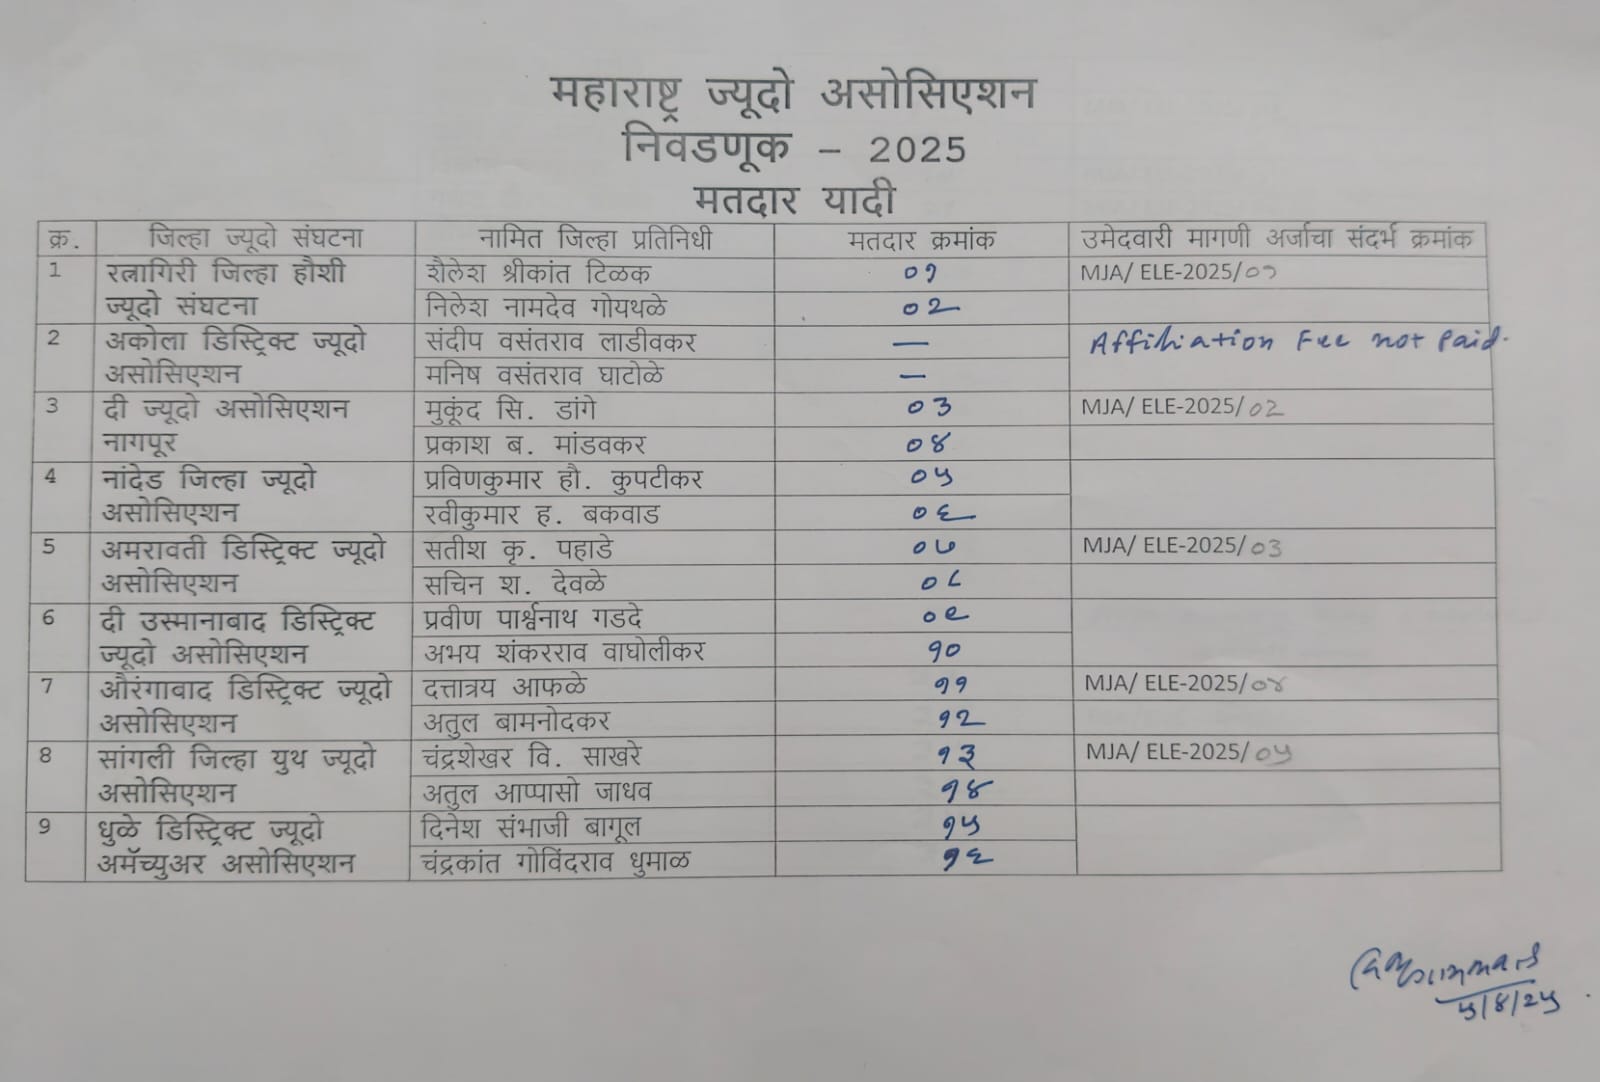 महाराष्ट्र ज्यूदो असोसिएशन
निवडणूक - 2025
मतदार यादी
क्र. जिल्हा ज्यूदो संघटना नामित जिल्हा प्रतिनिधी मतदार क्रमांक उमेदवारी मागणी अर्जाचा संदर्भ क्रमांक
1 रत्नागिरी जिल्हा हौशी शैलेश श्रीकांत टिळक ०१ MJA/ ELE-2025/०१
ज्यूदो संघटना निलेश नामदेव गोयथळे ०२
2 अकोला डिस्ट्रिक्ट ज्यूदो संदीप वसंतराव लाडीवकर — Affiliation Fee not Paid.
असोसिएशन मनिष वसंतराव घाटोळे —
3 दी ज्यूदो असोसिएशन मुकूंद सि. डांगे ०३ MJA/ ELE-2025/०२
नागपूर प्रकाश ब. मांडवकर ०४
4 नांदेड जिल्हा ज्यूदो प्रविणकुमार हौ. कुपटीकर ०५
असोसिएशन रवीकुमार ह. बकवाड ०६
5 अमरावती डिस्ट्रिक्ट ज्यूदो सतीश कृ. पहाडे ०७ MJA/ ELE-2025/०३
असोसिएशन सचिन श. देवळे ०८
6 दी उस्मानाबाद डिस्ट्रिक्ट प्रवीण पार्श्वनाथ गडदे ०९
ज्यूदो असोसिएशन अभय शंकरराव वाघोलीकर १०
7 औरंगाबाद डिस्ट्रिक्ट ज्यूदो दत्तात्रय आफळे ११ MJA/ ELE-2025/०४
असोसिएशन अतुल बामनोदकर १२
8 सांगली जिल्हा युथ ज्यूदो चंद्रशेखर वि. साखरे १३ MJA/ ELE-2025/०५
असोसिएशन अतुल आप्पासो जाधव १४
9 धुळे डिस्ट्रिक्ट ज्यूदो दिनेश संभाजी बागूल १५
अमॅच्युअर असोसिएशन चंद्रकांत गोविंदराव धुमाळ १६
५/8/२५